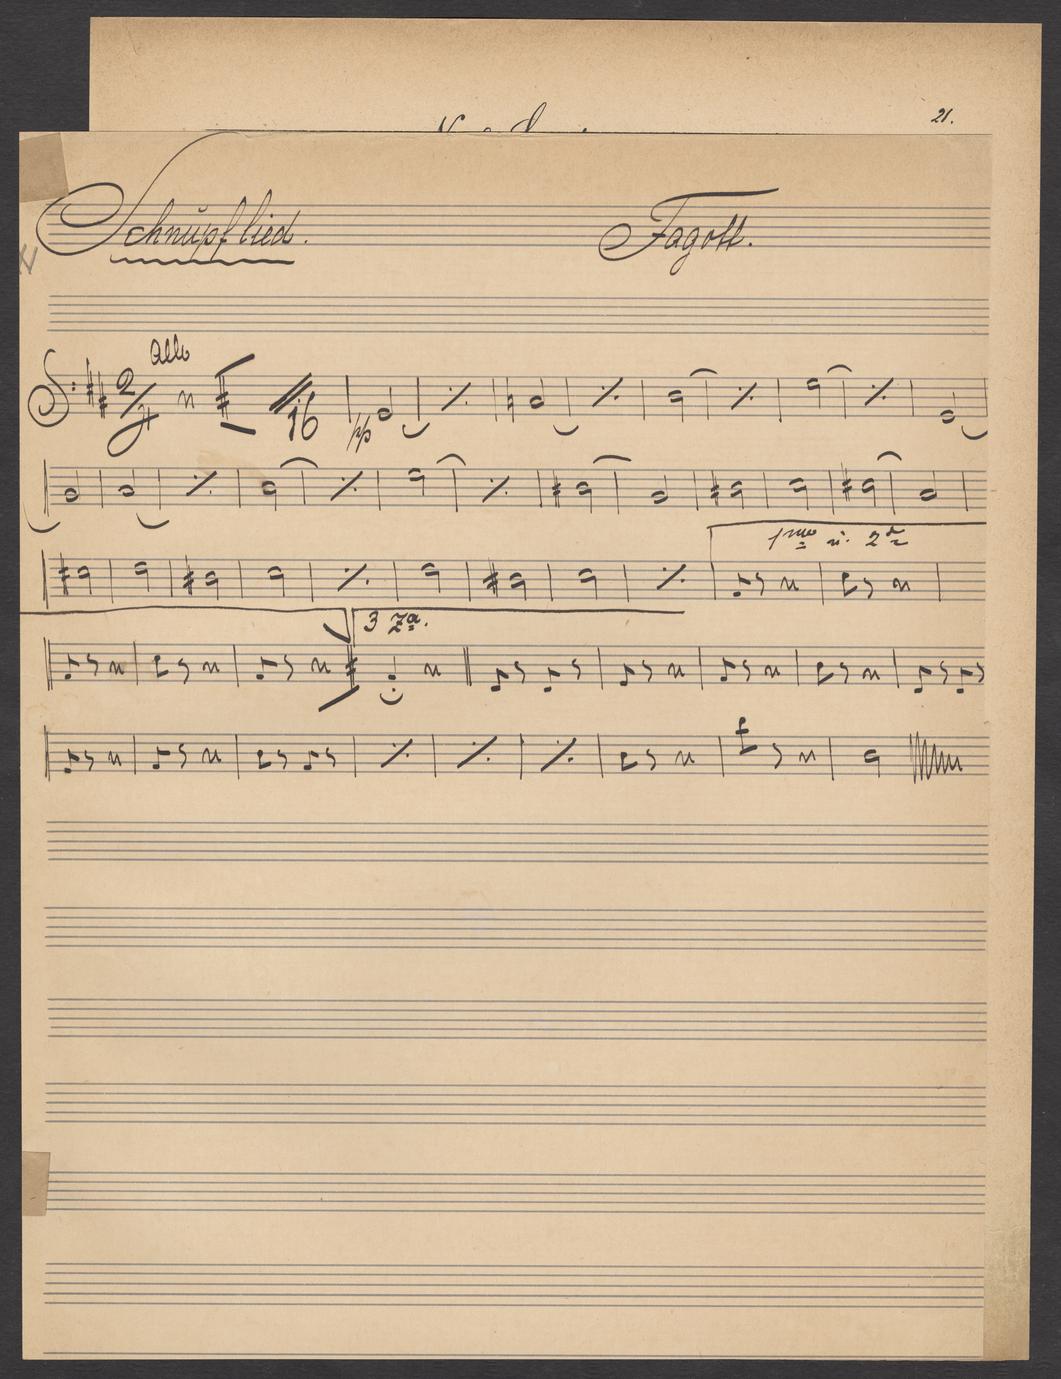 21.
Schnupflied. Fagott.
Allo
2/4 16 pp
1ma u. 2da
3 za.